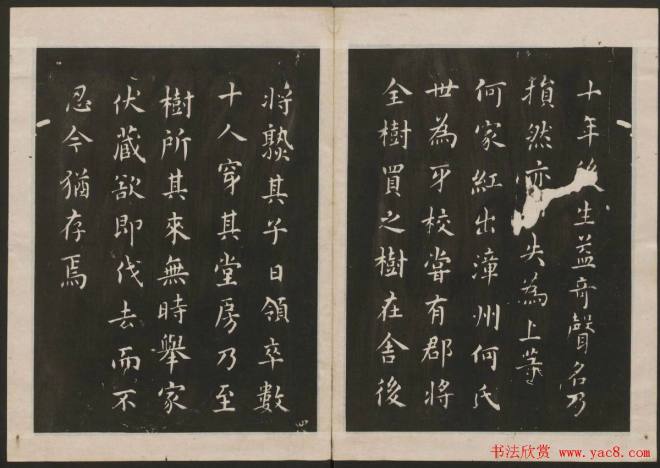 十年後生益奇聲名乃
損然亦失為上等
何家紅出漳州何氏
世為牙校嘗有郡將
全樹買之樹在舍後
將熟其子日領卒數
十人穿其堂房乃至
樹所其來無時舉家
伏藏欲即伐去而不
忍今猶存焉
书法欣赏 www.yac8.com